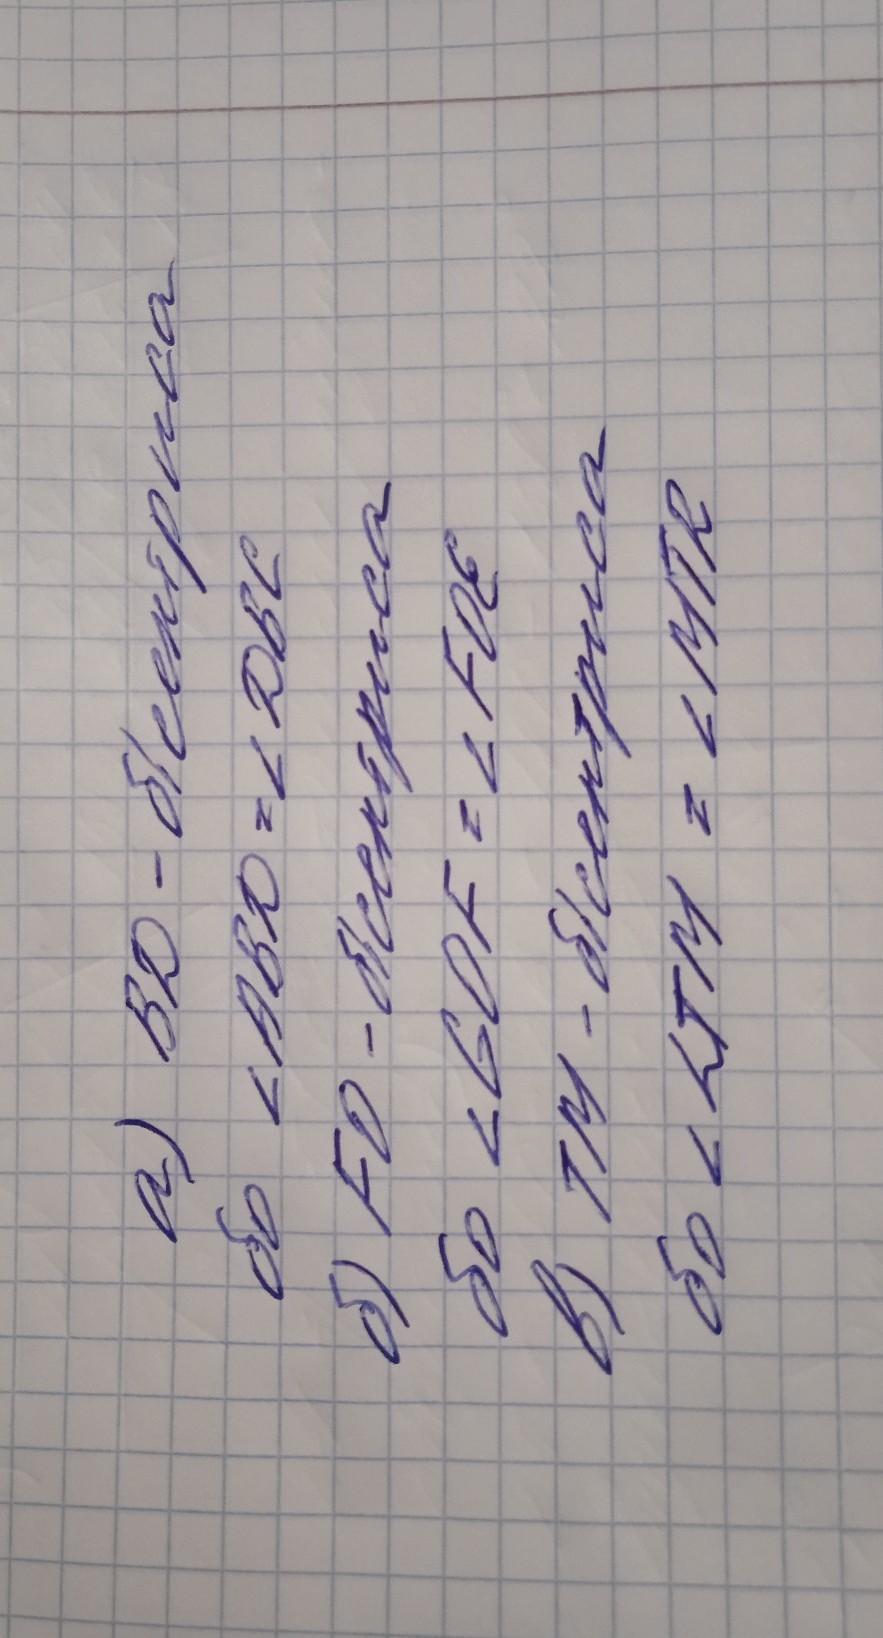 а) BD - бісектриса
бо <ABD = < DBC
б) FD - бісектриса
бо <GDF = < FDE
в) TM - бісектриса
бо < LTM = < MTR